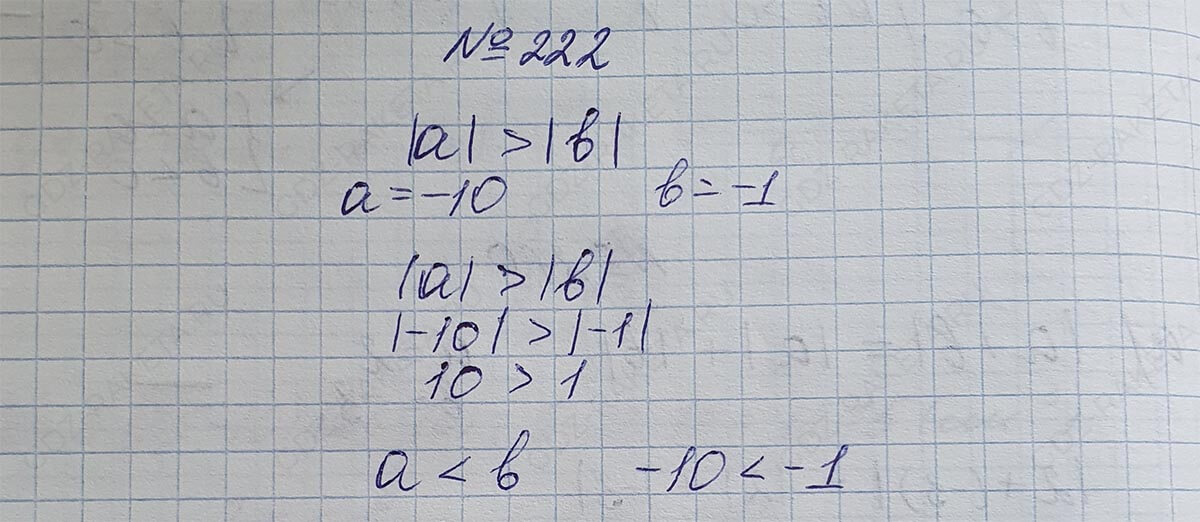 № 222
|a| > |b|
a = -10 b = -1
|a| > |b|
|-10| > |-1|
10 > 1
a < b -10 < -1